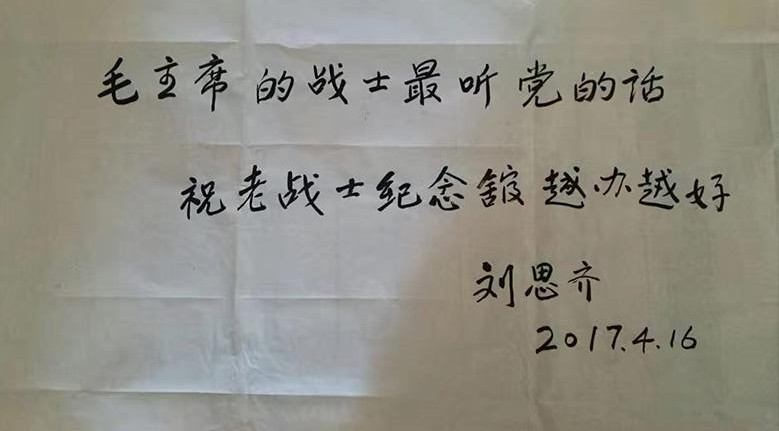 毛主席的战士最听党的话
祝老战士纪念馆越办越好
刘思齐
2017.4.16